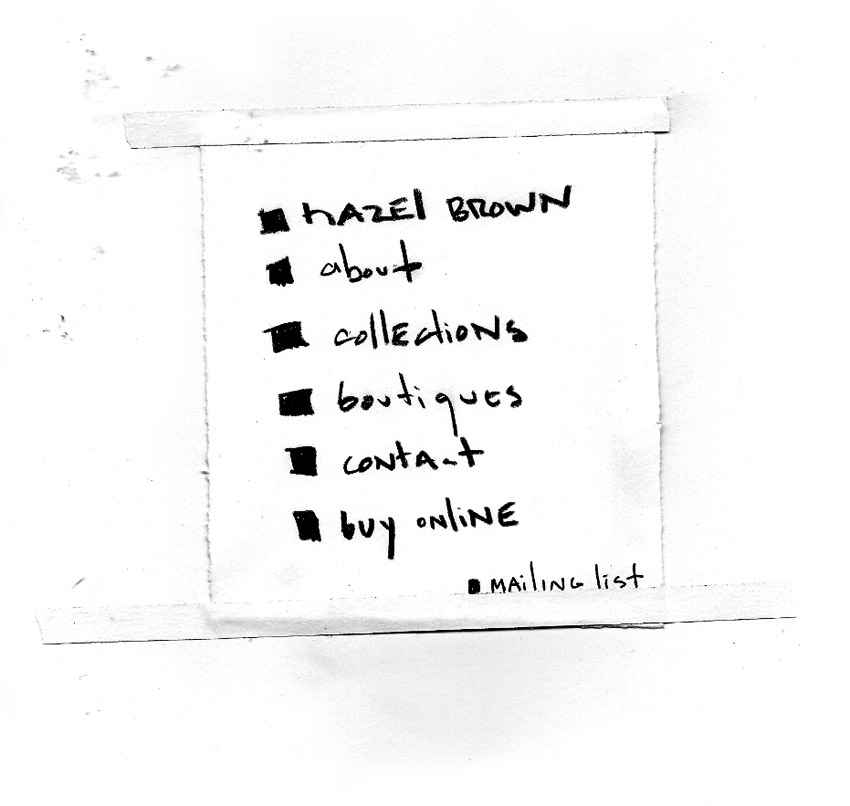 hAZEl BROWN
about
collEctioNs
boutiques
CONtAct
buy ONliNE
MAiliNG list